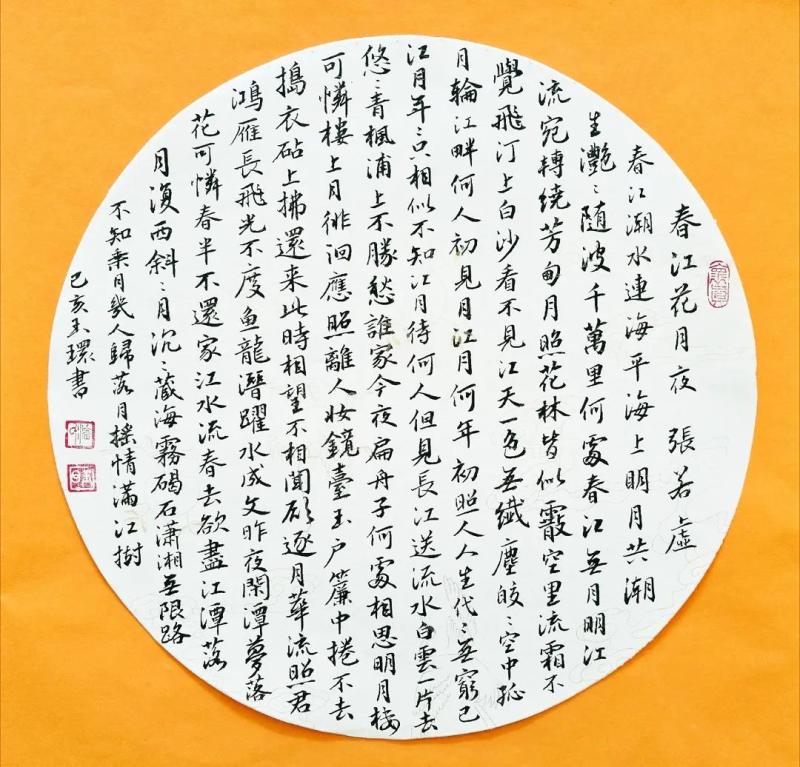 春江花月夜 張若虛
春江潮水連海平海上明月共潮
生灧〻随波千萬里何處春江無月明江
流宛轉繞芳甸月照花林皆似霰空里流霜不
覺飛汀上白沙看不見江天一色無纖塵皎〻空中孤
月輪江畔何人初見月江月何年初照人人生代〻無窮已
江月年〻只相似不知江月待何人但見長江送流水白雲一片去
悠〻青楓浦上不勝愁誰家今夜扁舟子何處相思明月樓
可憐樓上月徘洄應照離人妝鏡臺玉户簾中捲不去
搗衣砧上拂還来此時相望不相聞願逐月華流照君
鴻雁長飛光不度鱼龍潛躍水成文昨夜閑潭夢落
花可憐春半不還家江水流春去欲盡江潭落
月復西斜〻月沉〻藏海霧碣石瀟湘無限路
不知乘月幾人歸落月摇情滿江樹
己亥玉環書